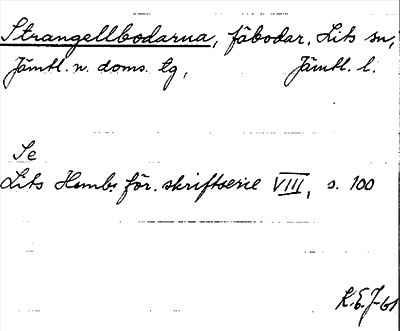 Strangellbodarna, fäbodar, Lits sn,
Jämtl. n. doms. lg, Jämtl. l.
Se
Lits Hembs för. skriftserie VIII, s. 100
K.E.J-61